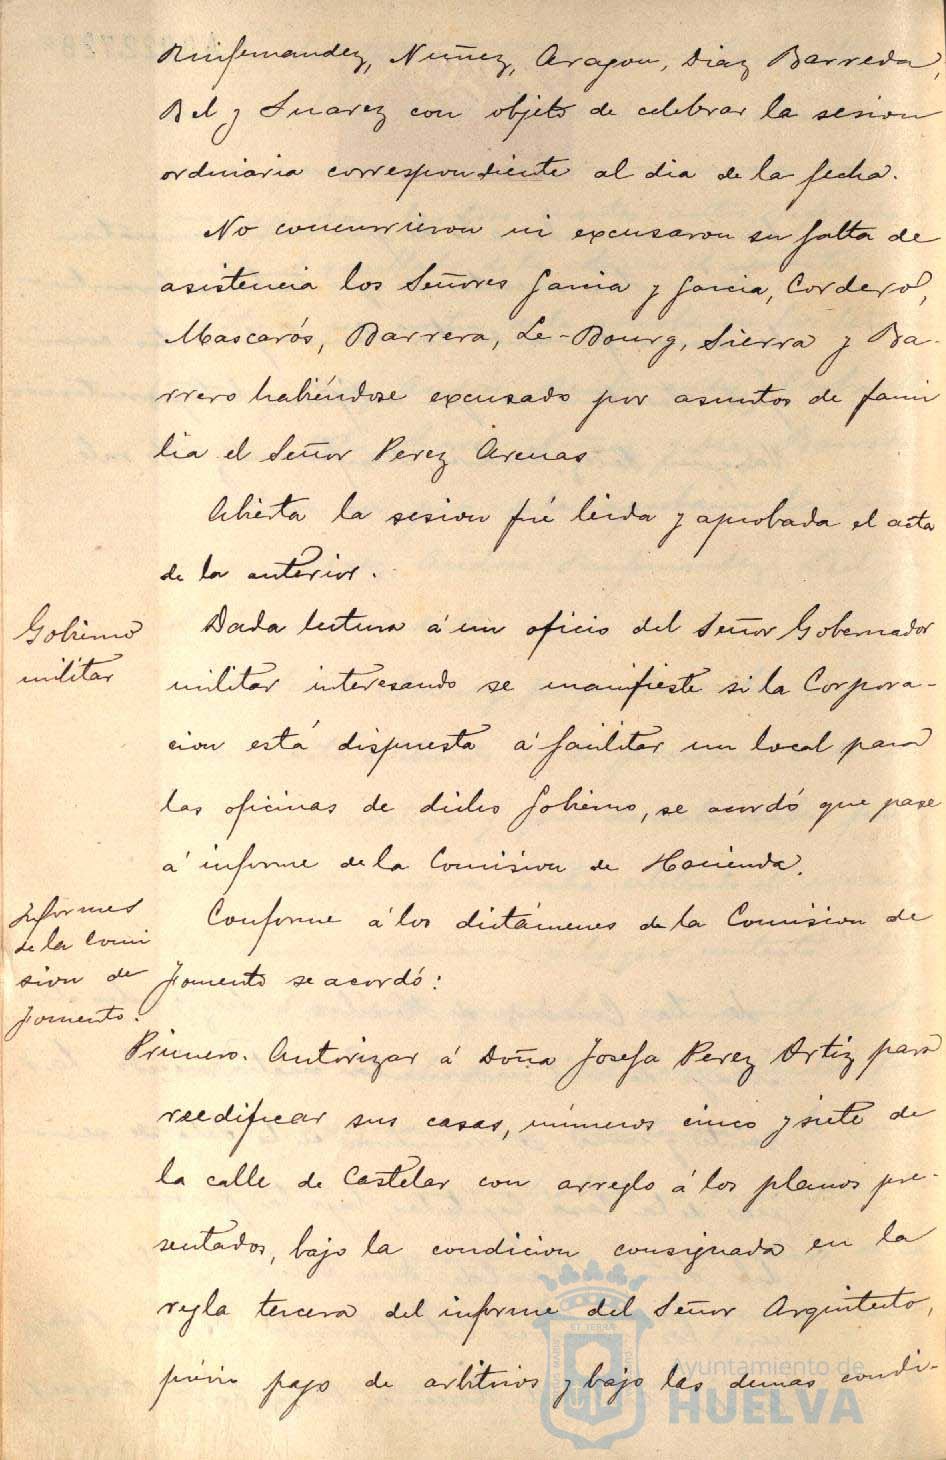 Ruifernandez, Nuñez, Aragon, Diaz Barreda,
Bel y Suarez con objeto de celebrar la sesion
ordinaria correspondiente al dia de la fecha.
No concurrieron ni excusaron su falta de
asistencia los Señores Garcia y Garcia, Cordero,
Mascarós, Barrera, Le-Bourg, Sierra y Ba-
rrero habiéndose excusado por asuntos de fami
lia el Señor Perez Arenas
Abierta la sesion fué leida y aprobada el acta
de la anterior.
Gobierno
militar
Dada lectura á un oficio del Señor Gobernador
militar interesando se manifieste si la Corpora-
cion está dispuesta á facilitar un local para
las oficinas de dicho Gobierno, se acordó que pase
á informe de la Comision de Hacienda.
Informes
de la Comi
sion de
Fomento.
Conforme á los dictámenes de la Comision de
Fomento se acordó:
Primero. Autorizar á Doña Josefa Perez Ortiz para
reedificar sus casas, números cinco y siete de
la calle de Castelar con arreglo á los planos pre-
sentados, bajo la condicion consignada en la
regla tercera del informe del Señor Arquitecto,
prévio pago de arbitrios y bajo las demas condi-
Ayuntamiento de
HUELVA